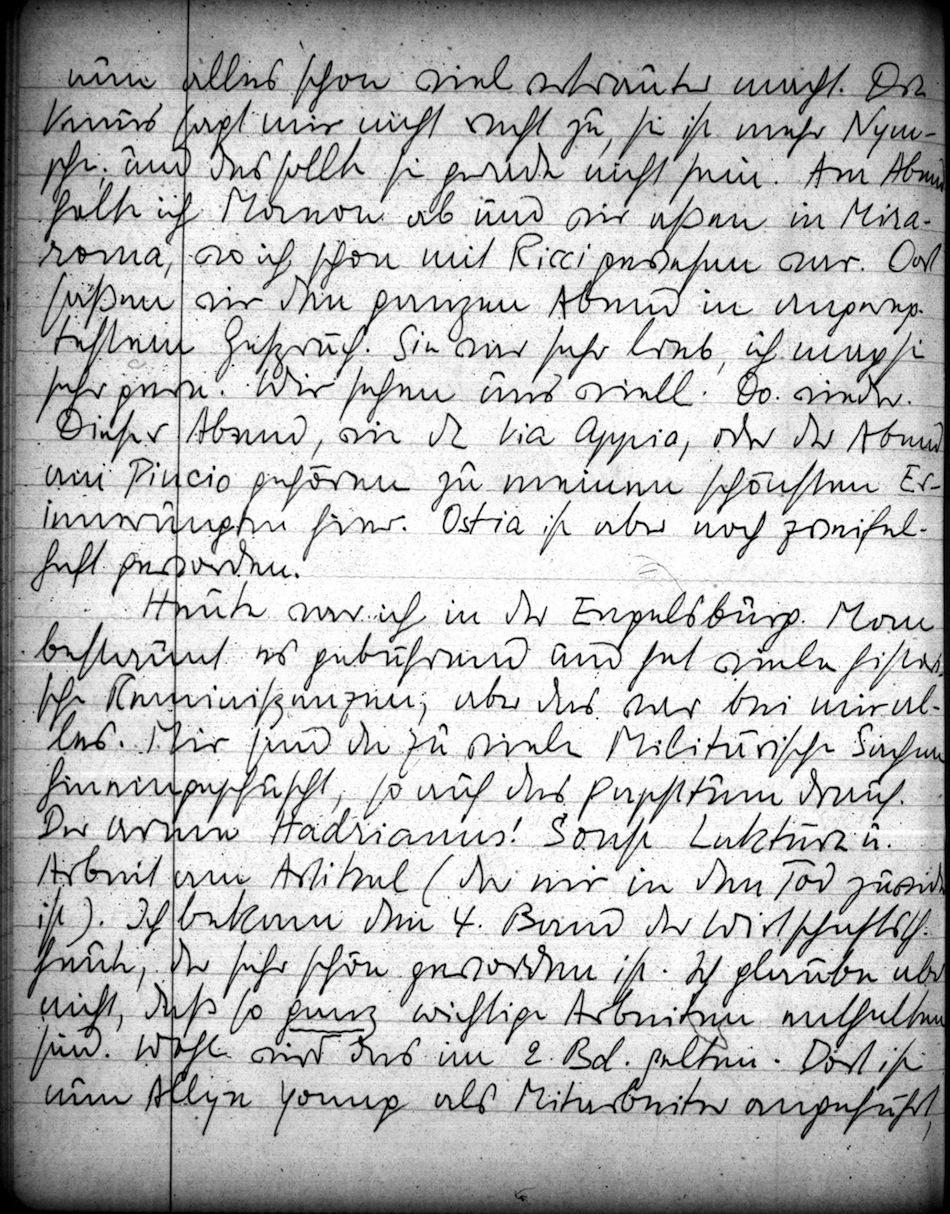 nun alles schon viel vertrauter macht. Die
Venus sagt mir nicht recht zu, sie ist mehr Nym-
phe, und das sollte sie gerade nicht sein. Am Abend
holte ich Marion ab und wir aßen in Mira-
roma, wo ich schon mit Ricci gewesen war. Dort
saßen wir den ganzen Abend in angereg-
testem Gespräch. Sie war sehr lieb, ich mag sie
sehr gern. Wir sehen uns viell. Do. wieder.
Dieser Abend, wie die Via Appia, oder der Abend
am Pincio gehören zu meinen schönsten Er-
innerungen hier. Ostia ist aber noch zweifel-
haft geworden.
Heute war ich in der Engelsburg. Man
bestaunt es gebührend und hat viele histori-
sche Reminiszenzen, aber das war bei mir al-
les. Mir sind da zu viele Militärische Sachen
hineingepfuscht, so auch das Papsttum drauf.
Der arme Hadrianus! Sonst Lektüre u.
Arbeit am Artikel (der mir in den Tod zuwider
ist). Ich bekam den 4. Band der Wirtschaftsth.
heute, der sehr schön geworden ist. Ich glaube aber
nicht, daß so ganz wichtige Arbeiten enthalten
sind. Wohl wird das im 2. Bd. gelten. Dort ist
nun Allyn Young als Mitarbeiter angeführt,